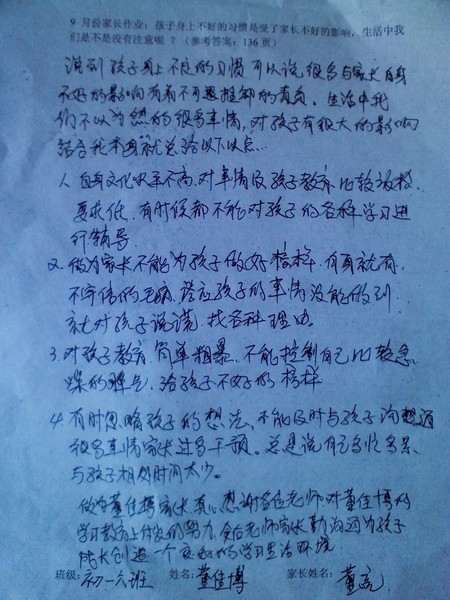 9 月份家长作业：孩子身上不好的习惯是受了家长不好的影响，生活中我
们是不是没有注意呢？（参考答案：136 页）
说到孩子身上不良的习惯可以说很多与家长自身
不好的影响有着不可推卸的责负。生活中我
们不以为然的很多事情，对孩子有很大的影响
结合我本身就总结以下以点…
1. 自身文化水平不高，对事情及孩子教育比较放松，
要求低，有时候都不能对孩子的各种学习进
行辅导。
2. 做为家长不能为孩子做好榜样，自身就有
不守信的毛病，答应孩子的事情没能做到
就对孩子说谎，找各种理由。
3. 对孩子教育简单粗暴，不能控制自己比较急
燥的脾气，给孩子不好的榜样
4. 有时忽略孩子的想法，不能及时与孩子沟通
很多事情家长过多干预。总是说自己多忙多累
与孩子相处时间太少。
做为董佳博家长真心感谢各位老师对董佳博的
学习教育上付出的努力，会后老师家长勤沟通为孩子
成长创造一个良好的学习生活环境
班级：初一六班 姓名：董佳博 家长姓名：董